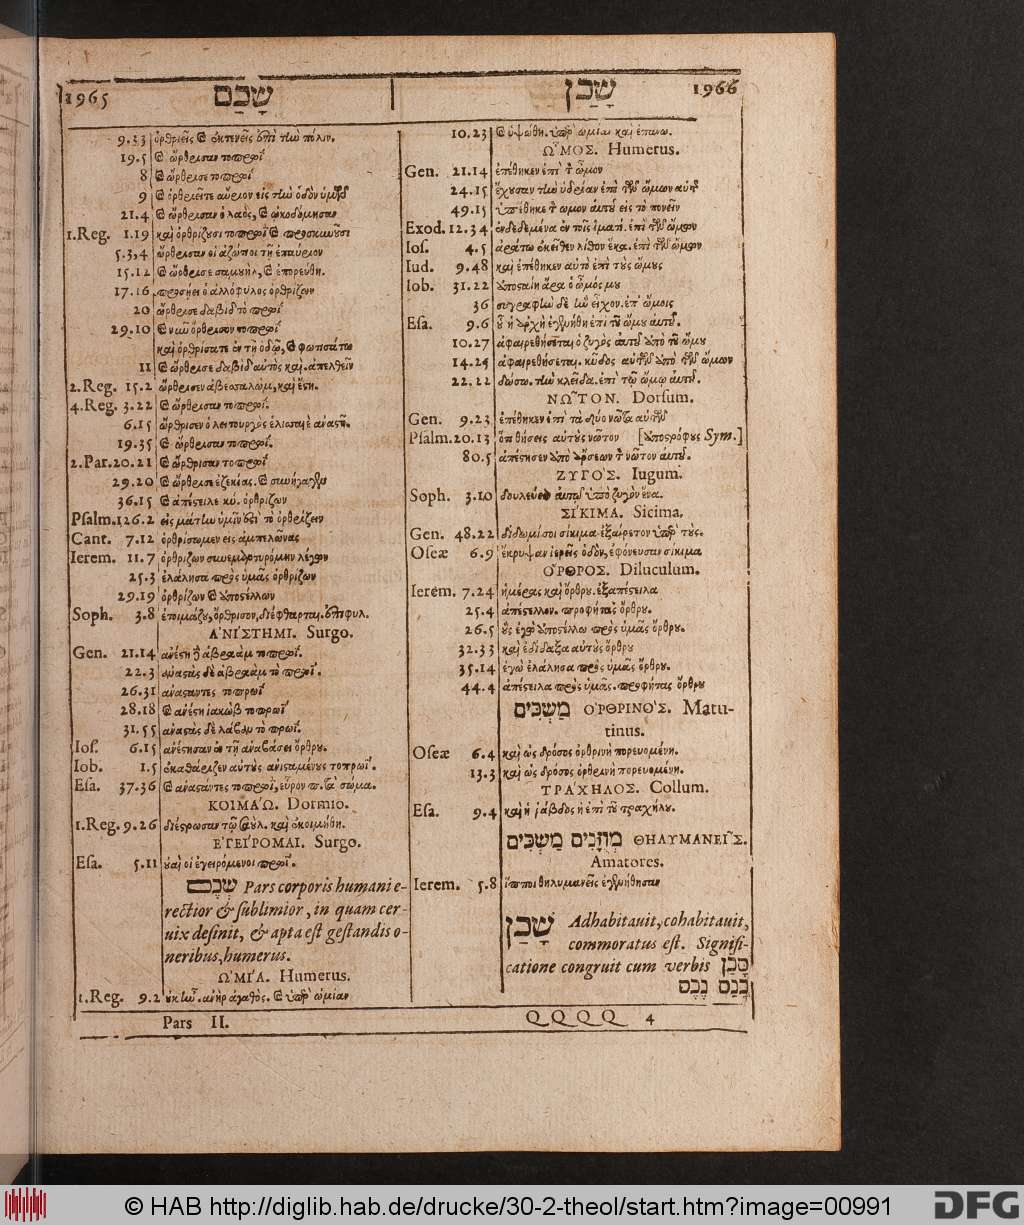 1965 שָׁכַם
שָׁכַן 1966
9.33 ὀρθριεῖς καὶ ἐκτενεῖς ἐπὶ τὴν πόλιν.
19.5 καὶ ὤρθρισαν τοπρωῒ
8 καὶ ὤρθρισε τοπρωῒ
9 καὶ ὀρθριεῖτε αὔριον εἰς τὴν ὁδὸν ὑμῶν
21.4 καὶ ὤρθρισαν ὁ λαὸς, καὶ ᾠκοδόμησαν
1.Reg. 1.19 καὶ ὀρθρίζουσι τοπρωῒ καὶ προσκυνοῦσι
5.3,4 ὤρθρισαν οἱ ἀζώτιοι τῇ ἐπαύριον
15.12 καὶ ὤρθρισε σαμουὴλ, καὶ ἐπορεύθη.
17.16 προσήει ὁ ἀλλόφυλος ὀρθρίζων
20 ὤρθρισε δαβὶδ τὸ πρωῒ
29.10 καὶ νῦν ὄρθρισον τοπρωῒ
καὶ ὀρθρίσατε ἐν τῇ ὁδῷ, καὶ φωτισάτω
11 καὶ ὤρθρισε δαβὶδ αὐτὸς καὶ. ἀπελθεῖν
2.Reg. 15.2 ὤρθρισεν ἀβεσαλὼμ, καὶ ἔστη.
4.Reg. 3.22 καὶ ὤρθρισαν τοπρωῒ.
6.15 ὤρθρισεν ὁ λειτουργὸς ἑλισαιὲ ἀναστῆ.
19.35 καὶ ὤρθρισαν τοπρωῒ.
2.Par. 20.21 καὶ ὤρθρισαν τοπρωῒ
29.20 καὶ ὤρθρισε ἐζεκίας. καὶ συνήγαγεν
36.15 καὶ ἀπέστειλε κύ. ὀρθρίζων
Psalm. 126.2 εἰς μάτην ὑμῖν ἐστὶ τὸ ὀρθρίζειν
Cant. 7.12 ὀρθρίσωμεν εἰς ἀμπελῶνας
Ierem. 11.7 ὀρθρίζων διεμαρτυρόμην λέγων
25.3 ἐλάλησα πρὸς ὑμᾶς ὀρθρίζων
29.19 ὀρθρίζων καὶ ἀποστέλλων
Soph. 3.8 ἑτοιμάζου, ὄρθρισον, διέφθαρται. ἐπιφυλ.
ἈΝΙΣΤΗΜΙ. Surgo.
Gen. 21.14 ἀνέστη δὲ ἀβραὰμ τοπρωῒ.
22.3 ἀναστὰς δὲ ἀβραὰμ τὸ πρωῒ.
26.31 ἀναστάντες τοπρωῒ
28.18 καὶ ἀνέστη ἰακὼβ τοπρωῒ
31.55 ἀναστὰς δὲ λάβαν τὸ πρωῒ.
Ios. 6.15 ἀνέστησαν ἐν τῇ ἀναβάσει ὄρθρου.
Iob. 1.5 ἐκαθάριζεν αὐτοὺς ἀνιστάμενος τοπρωῒ.
Esa. 37.36 καὶ ἀναστάντες τοπρωῒ, εὗρον π. τὰ σώμα.
ΚΟΙΜΑΏ. Dormio.
1.Reg. 9.26 διέστρωσαν τῷ σαύλ. καὶ ἐκοιμήθη.
ἘΓΕΊΡΟΜΑΙ. Surgo.
Esa. 5.11 οὐαὶ οἱ ἐγειρόμενοι πρωῒ.
שְׁכֶם Pars corporis humani e-
rectior & sublimior, in quam cer-
uix desinit, & apta est gestandis o-
neribus, humerus.
ὨΜΊΑ. Humerus.
1.Reg. 9.2 οὐκ ἦν. ἀνὴρ ἀγαθὸς. καὶ ὑπὲρ ὠμίαν
10.23 καὶ ὑψώθη. ὑπὲρ ὠμίαν καὶ ἐπάνω.
ὮΜΟΣ. Humerus.
Gen. 21.14 ἐπέθηκεν ἐπὶ τὸν ὦμον
24.15 ἔχουσαν τὴν ὑδρίαν ἐπὶ τῶν ὤμων αὐτῆς
49.15 ὑπέθηκε τὸν ὦμον αὐτοῦ εἰς τὸ πονεῖν
Exod. 12.34 ἐνδεδεμένα ἐν τοῖς ἱματί. ἐπὶ τῶν ὤμων
Ios. 4.5 ἀράτω ἐκεῖθεν λίθον ἕκα. ἐπὶ τῶν ὤμων
Iud. 9.48 καὶ ἐπέθηκεν αὐτὸ ἐπὶ τοὺς ὤμους
Iob. 31.22 ἀποσταίη ἄρα ὁ ὦμός μου
36 συγραφὴν δὲ ἣν εἶχον. ἐπ' ὤμοις
Esa. 9.6 οὗ ἡ ἀρχὴ ἐγενήθη ἐπὶ τοῦ ὤμου αὐτοῦ.
10.27 ἀφαιρεθήσεται ὁ ζυγὸς αὐτοῦ ἀπὸ τοῦ ὤμου
14.25 ἀφαιρεθήσεται. κῦδος αὐτῶν ἀπὸ τῶν ὤμων
22.22 δώσω. τὴν κλεῖδα. ἐπὶ τῷ ὤμῳ αὐτοῦ.
ΝΩ͂ΤΟΝ. Dorsum.
Gen. 9.23 ἐπέθηκεν ἐπὶ τὰ δύο νῶτα αὐτῶν
Psalm. 20.13 ὅτι θήσεις αὐτοὺς νῶτον [ἀποστρόφους Sym.]
80.5 ἀπέστησεν ἀπὸ ἄρσεων τὸν νῶτον αὐτοῦ.
ΖΥΓΌΣ. Iugum.
Soph. 3.10 δουλεύειν αὐτῷ ὑπὸ ζυγὸν ἕνα.
ΣΊΚΙΜΑ. Sicima.
Gen. 48.22 δίδωμί σοι σίκιμα ἐξαίρετον ὑπὲρ τοὺς.
Oseæ 6.9 ἔκρυψαν ἱερεῖς ὁδὸν, ἐφόνευσαν σίκιμα
ὌΡΘΡΟΣ. Diluculum.
Ierem. 7.24 ἡμέρας καὶ ὄρθρου. ἐξαπέστειλα
25.4 ἀπέστελλον. προφήτας ὄρθρου.
26.5 οὓς ἐγὼ ἀποστέλλω πρὸς ὑμᾶς ὄρθρου.
32.33 καὶ ἐδίδαξα αὐτοὺς ὄρθρου
35.14 ἐγὼ ἐλάλησα πρὸς ὑμᾶς ὄρθρου.
44.4 ἀπέστειλα πρὸς ὑμᾶς. προφήτας ὄρθρου
מַשְׁכִּים ὈΡΘΡΙΝΌΣ. Matu-
tinus.
Oseæ 6.4 καὶ ὡς δρόσος ὀρθρινὴ πορευομένη.
13.3 καὶ ὡς δρόσος ὀρθρινὴ πορευομένη.
ΤΡΆΧΗΛΟΣ. Collum.
Esa. 9.4 καὶ ἡ ῥάβδος ἡ ἐπὶ τοῦ τραχήλου.
מְוּזָּנִים מַשְׁכִּים ΘΗΛΥΜΑΝΕΙ͂Σ.
Amatores.
Ierem. 5.8 ἵπποι θηλυμανεῖς ἐγενήθησαν
שָׁכַן Adhabitauit, cohabitauit,
commoratus est. Signifi-
catione congruit cum verbis סָכַן
כָּנַס נֶכֶס
Pars II. QQQQ 4
© HAB http://diglib.hab.de/drucke/30-2-theol/start.htm?image=00991
DFG